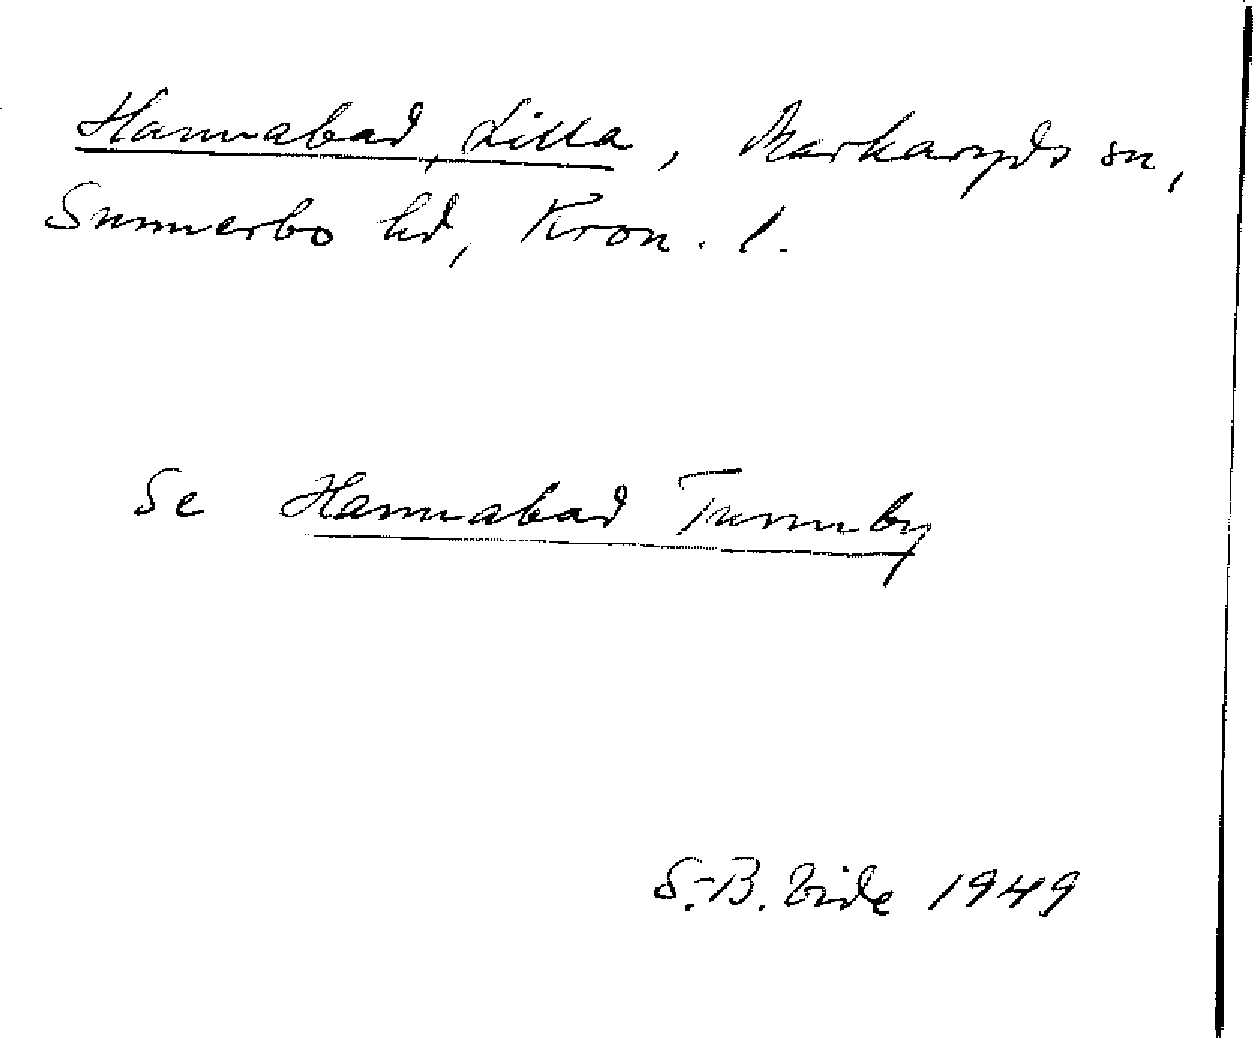 Hannabad, Lilla, Markaryds sn,
Sunnerbo hd, Kron. l.
Se Hannabad Tunnby
S.-B. Vide 1949